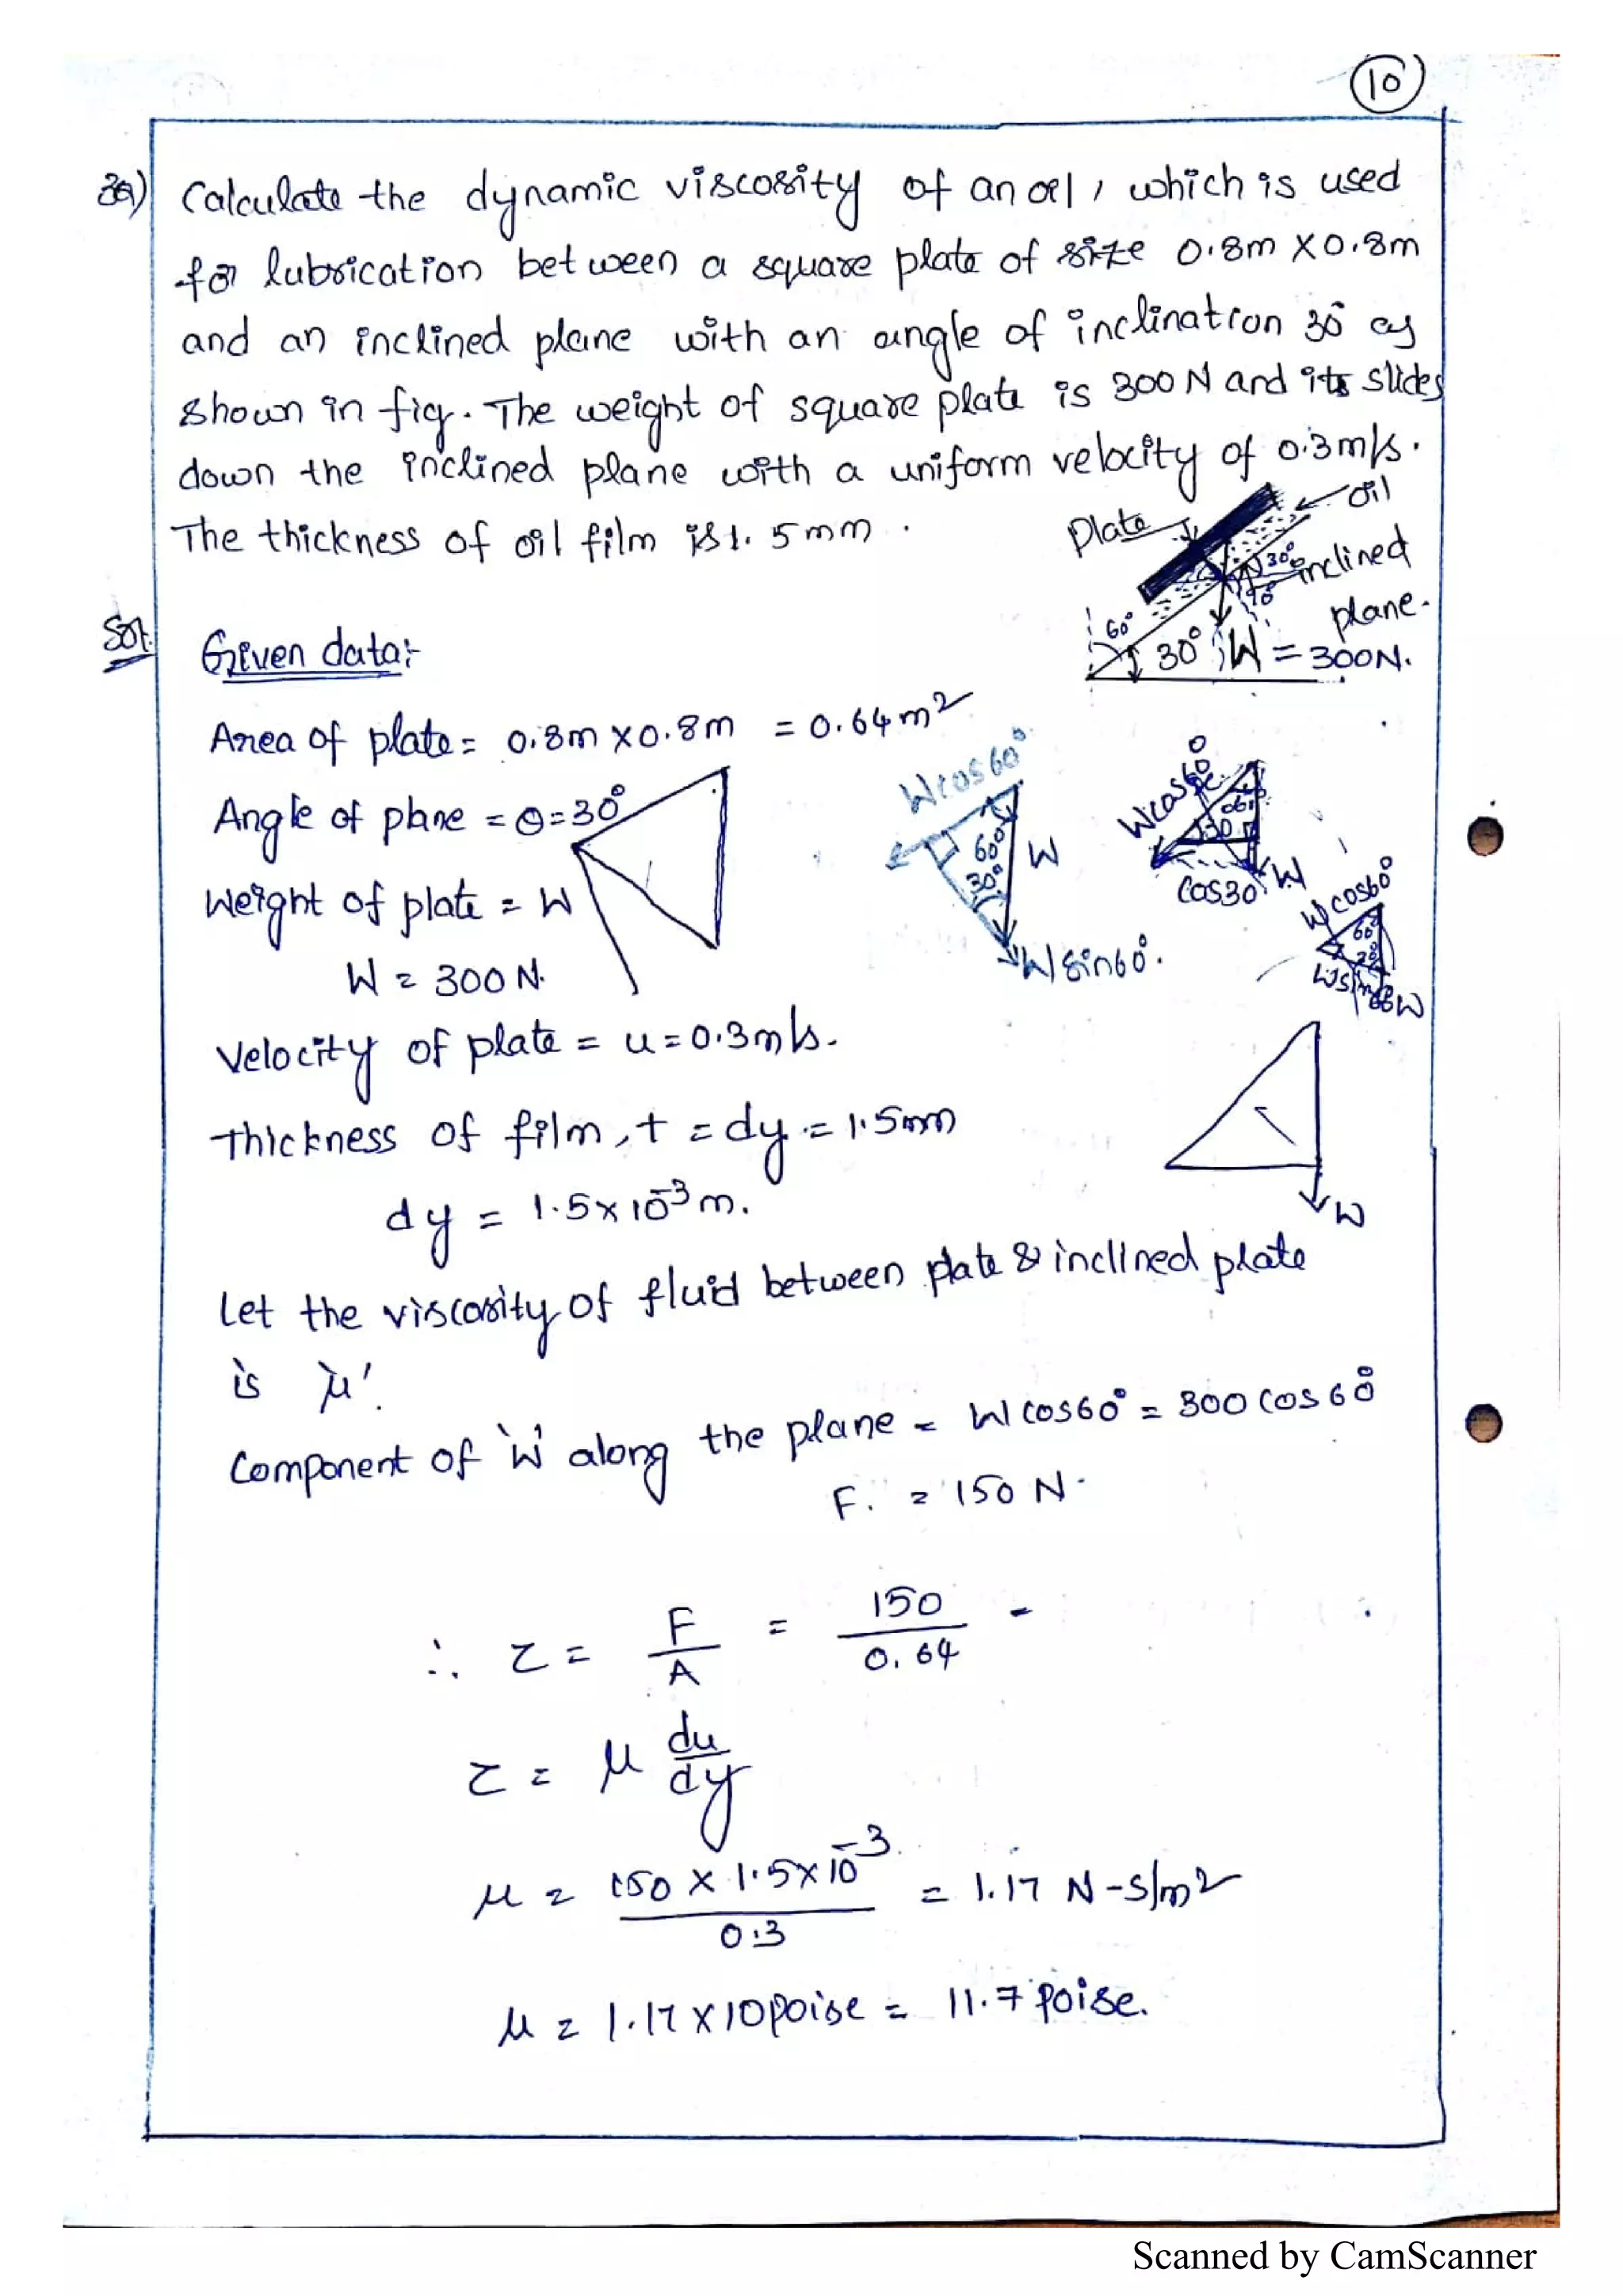 10
3a) Calculate the dynamic viscosity of an oil, which is used
for lubrication between a square plate of size 0.8m X 0.8m
and an inclined plane with an angle of inclination 30° as
shown in fig. The weight of square plate is 300 N and its slides
down the inclined plane with a uniform velocity of 0.3 m/s.
The thickness of oil film is 1.5 mm.
Plate
oil
30°
inclined
plane.
60°
30°
W = 300N.
Sol.
Given data:-
Area of plate = 0.8m X 0.8m = 0.64 m²
Angle of plane = θ = 30°
Weight of plate = W
W = 300 N.
W cos 60°
60°
30°
W
W sin 60°.
W cos 60°
30
W
Cos30
W cos60°
60°
W
Velocity of plate = u = 0.3 m/s.
Thickness of film, t = dy = 1.5mm
dy = 1.5 x 10⁻³ m.
W
Let the viscosity of fluid between plate & inclined plate
is 'μ'.
Component of 'W' along the plane = W cos60° = 300 cos 60°
F. = 150 N.
∴ τ = F/A = 150/0.64 -
τ = μ du/dy
μ = 150 X 1.5 x 10⁻³/0.3 = 1.17 N-s/m²
μ = 1.17 X 10 poise = 11.7 poise.
Scanned by CamScanner